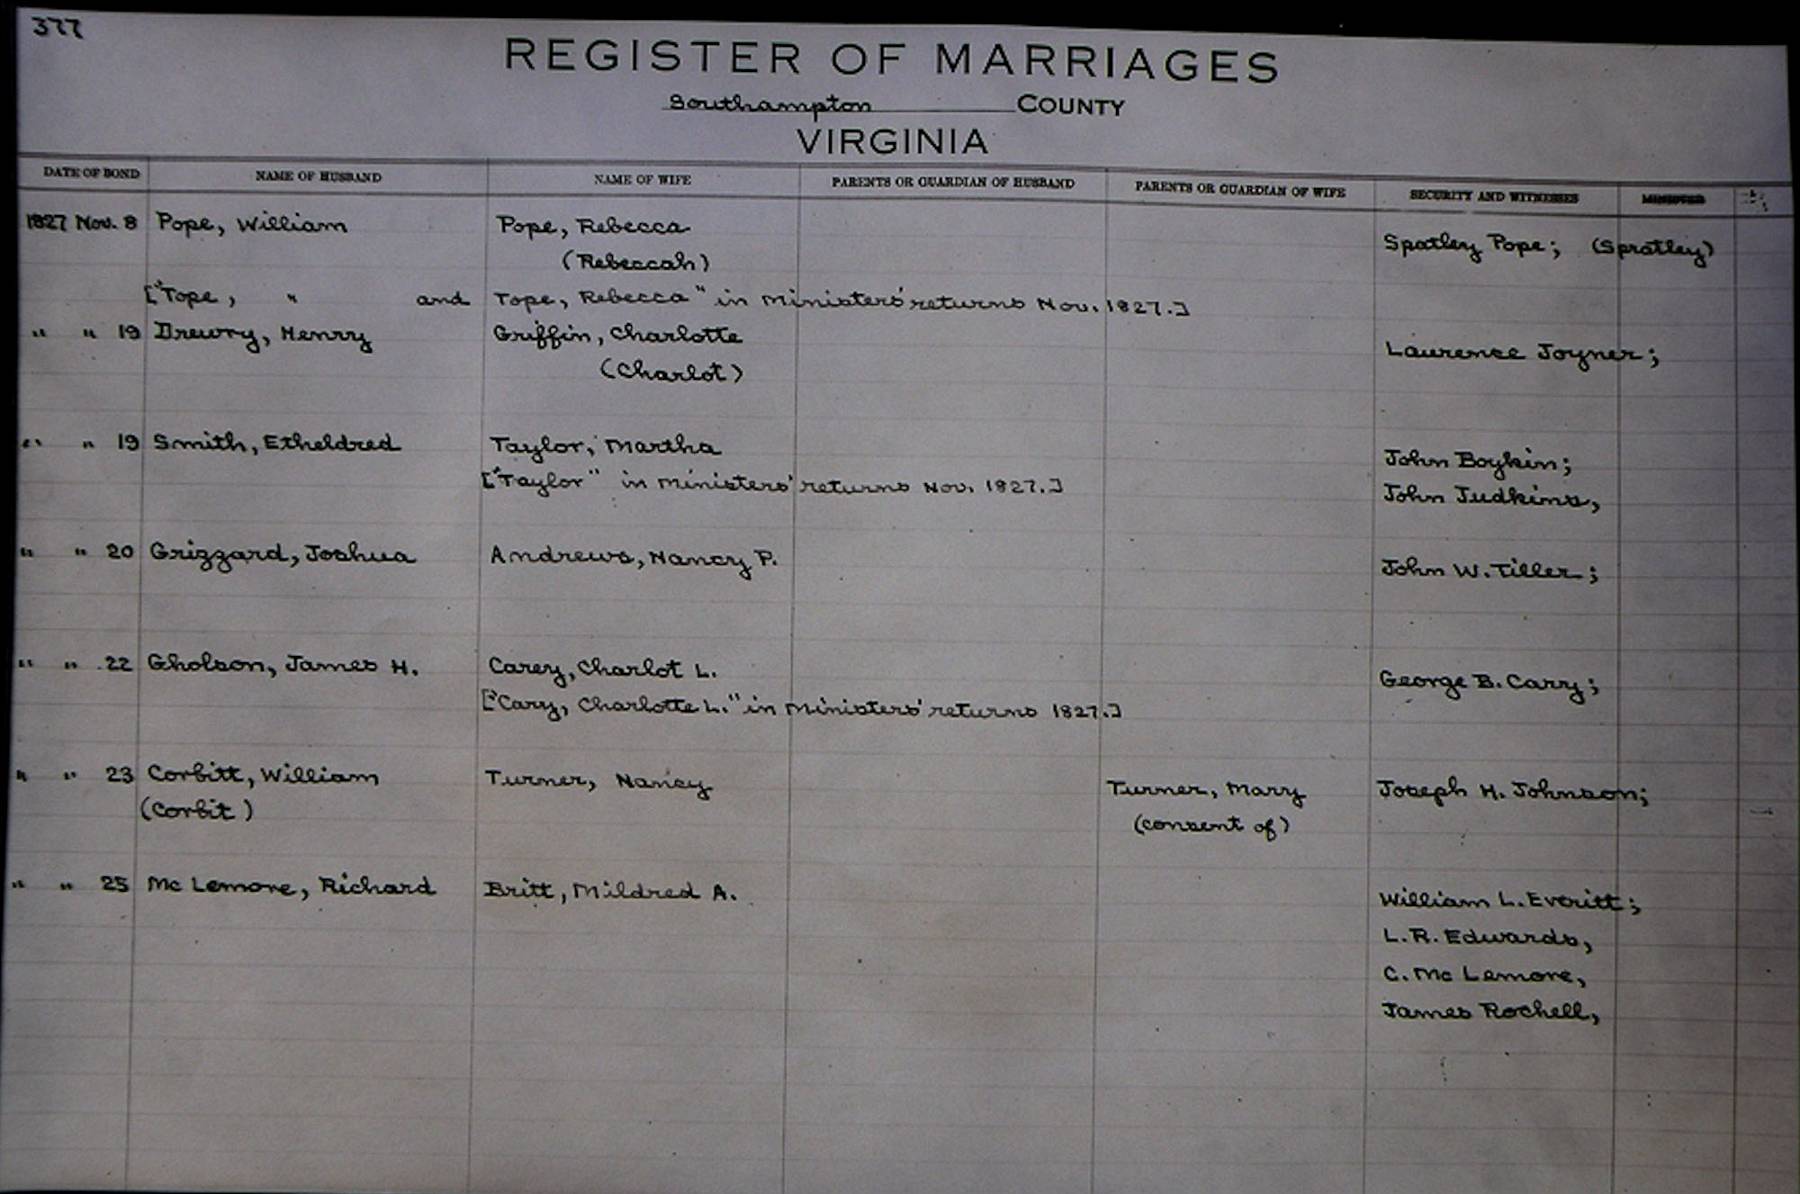 377
REGISTER OF MARRIAGES
Southampton COUNTY
VIRGINIA
DATE OF BOND NAME OF HUSBAND NAME OF WIFE PARENTS OR GUARDIAN OF HUSBAND PARENTS OR GUARDIAN OF WIFE SECURITY AND WITNESSES MINISTER
1827 Nov. 8 Pope, William Pope, Rebecca Spatley Pope; (Spratley)
(Rebeccah)
["Tope, " and Tope, Rebecca" in Ministers' returns Nov. 1827.]
" " 19 Drewry, Henry Griffin, Charlotte Laurence Joyner;
(Charlot)
" " 19 Smith, Etheldred Taylor, Martha John Boykin;
["Taylor" in Ministers' returns Nov. 1827.] John Judkins,
" " 20 Grizzard, Joshua Andrews, Nancy P. John W. Tiller;
" " 22 Gholson, James H. Carey, Charlot L. George B. Cary;
["Cary, Charlotte L." in Ministers' returns 1827.]
" " 23 Corbitt, William Turner, Nancy Turner, Mary Joseph H. Johnson;
(Corbit) (consent of)
" " 25 Mc Lemore, Richard Britt, Mildred A. William L. Everitt;
L.R. Edwards,
C. Mc Lemore,
James Rochell,